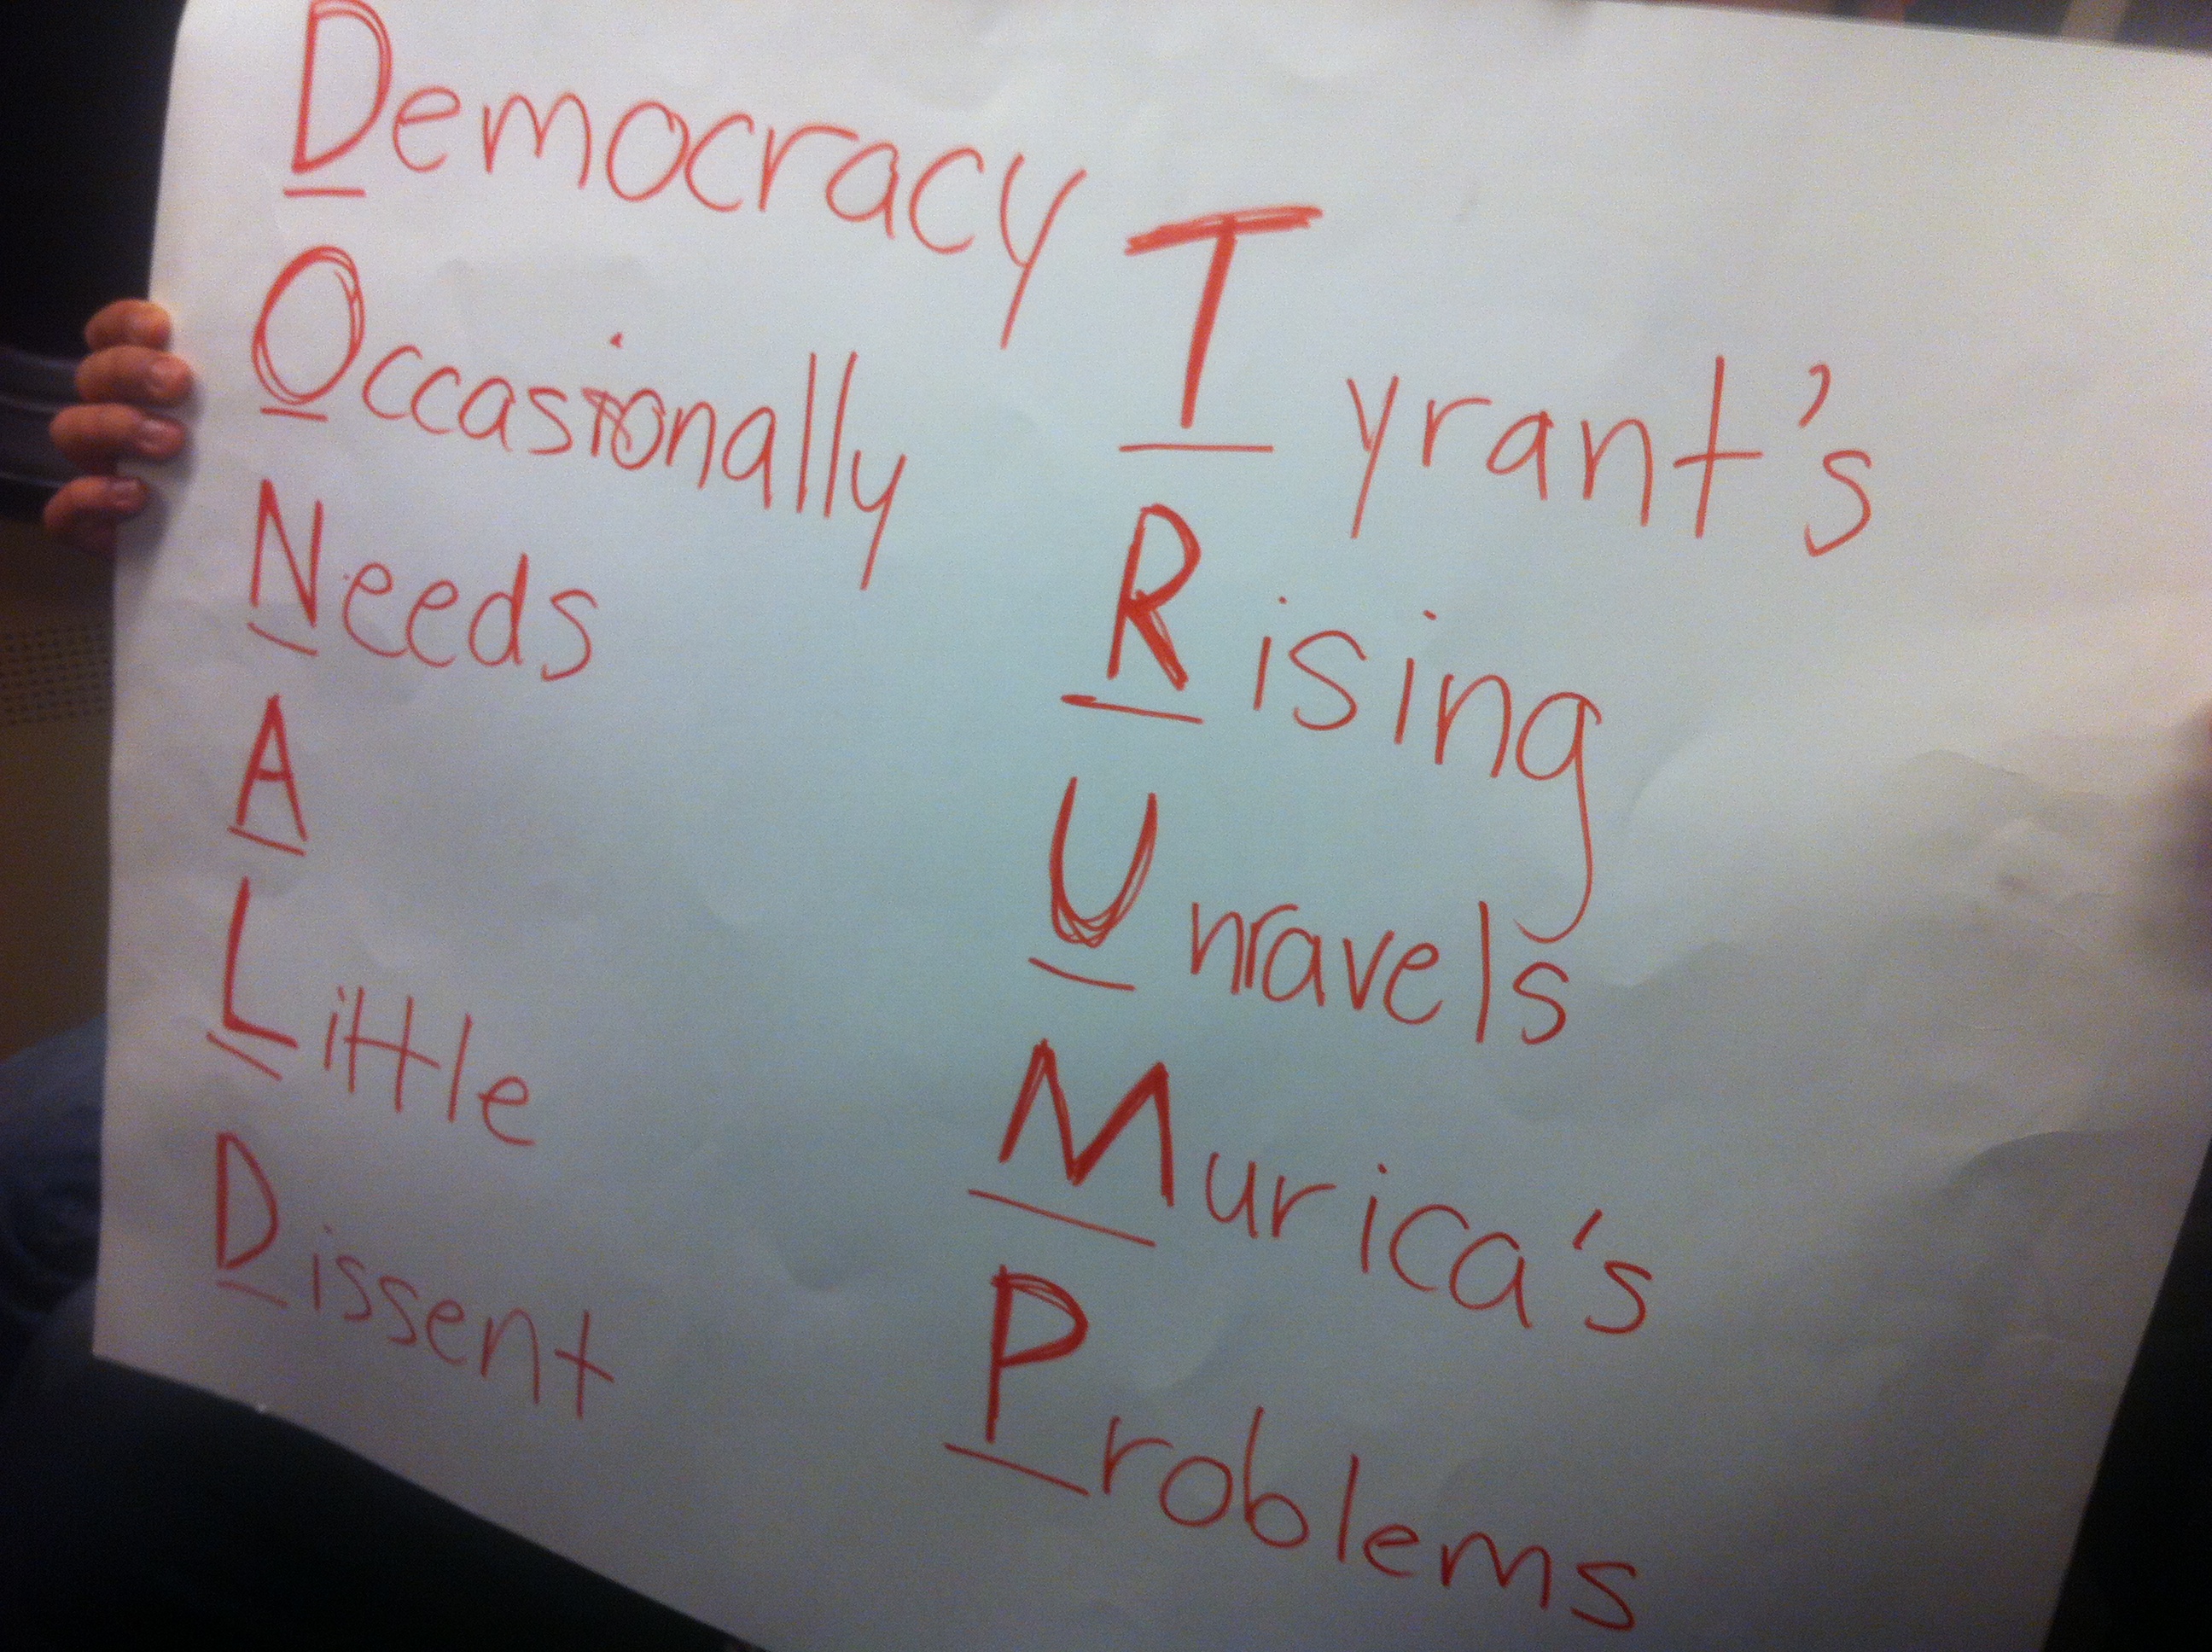 Democracy
Occasionally
Needs
A
Little
Dissent
Tyrant's
Rising
Unravels
Murica's
Problems